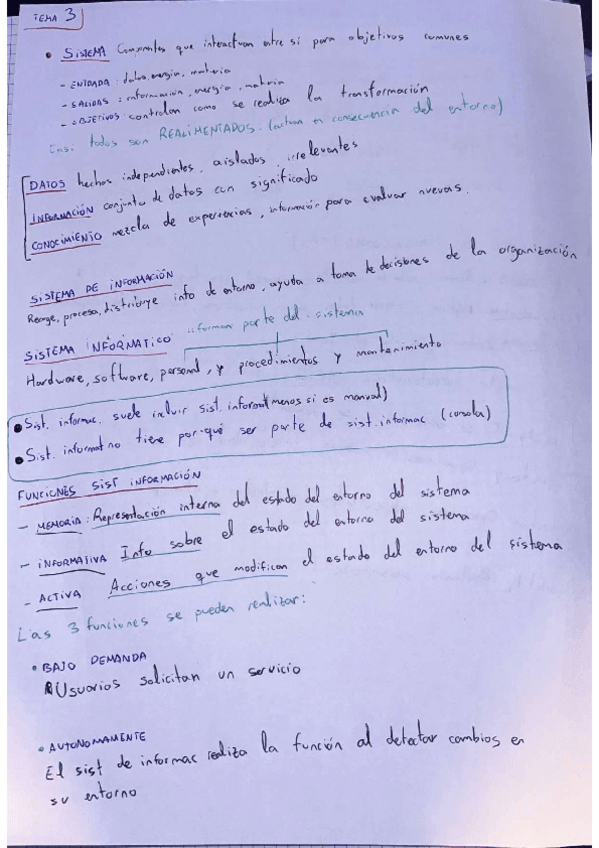 TEMA 3
• SISTEMA Componentes que interactuan entre sí para objetivos comunes
- ENTRADA: datos, energía, materia
- SALIDAS: información, energía, materia
- OBJETIVOS: controlan como se realiza la transformación
Casi todos son REALIMENTADOS. (actuan en consecuencia del entorno)
DATOS hechos independientes, aislados, irrelevantes
INFORMACIÓN conjunto de datos con significado
CONOCIMIENTO mezcla de experiencias, información para evaluar nuevas.
SISTEMA DE INFORMACIÓN
Recoge, procesa, distribuye info de entorno, ayuda a toma de decisiones de la organización
SISTEMA INFORMATICO forman parte del sistema
Hardware, software, personal, y procedimientos y mantenimiento
• Sist. informac. suele incluir sist. informat (menos si es manual)
• Sist. informat no tiene por qué ser parte de sist. informac (consola)
FUNCIONES SIST INFORMACIÓN
- MEMORIA: Representación interna del estado del entorno del sistema
- INFORMATIVA Info sobre el estado del entorno del sistema
- ACTIVA Acciones que modifican el estado del entorno del sistema
Las 3 funciones se pueden realizar:
• BAJO DEMANDA
Usuarios solicitan un servicio
• AUTONOMAMENTE
El sist de informac realiza la función al detectar cambios en
su entorno